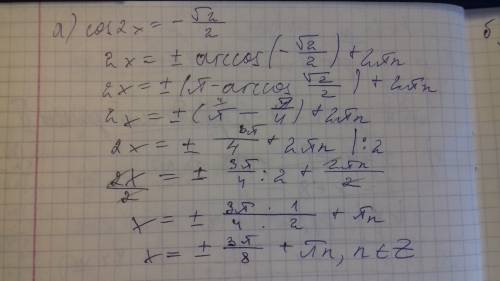 а) cos2x = - √2/2
2x = ± arccos(- √2/2) + 2πn
2x = ± (π - arccos √2/2) + 2πn
2x = ± (π - π/4) + 2πn
2x = ± 3π/4 + 2πn | :2
2x/2 = ± 3π/4 : 2 + 2πn/2
x = ± 3π/4 · 1/2 + πn
x = ± 3π/8 + πn, n ∈ Z
б